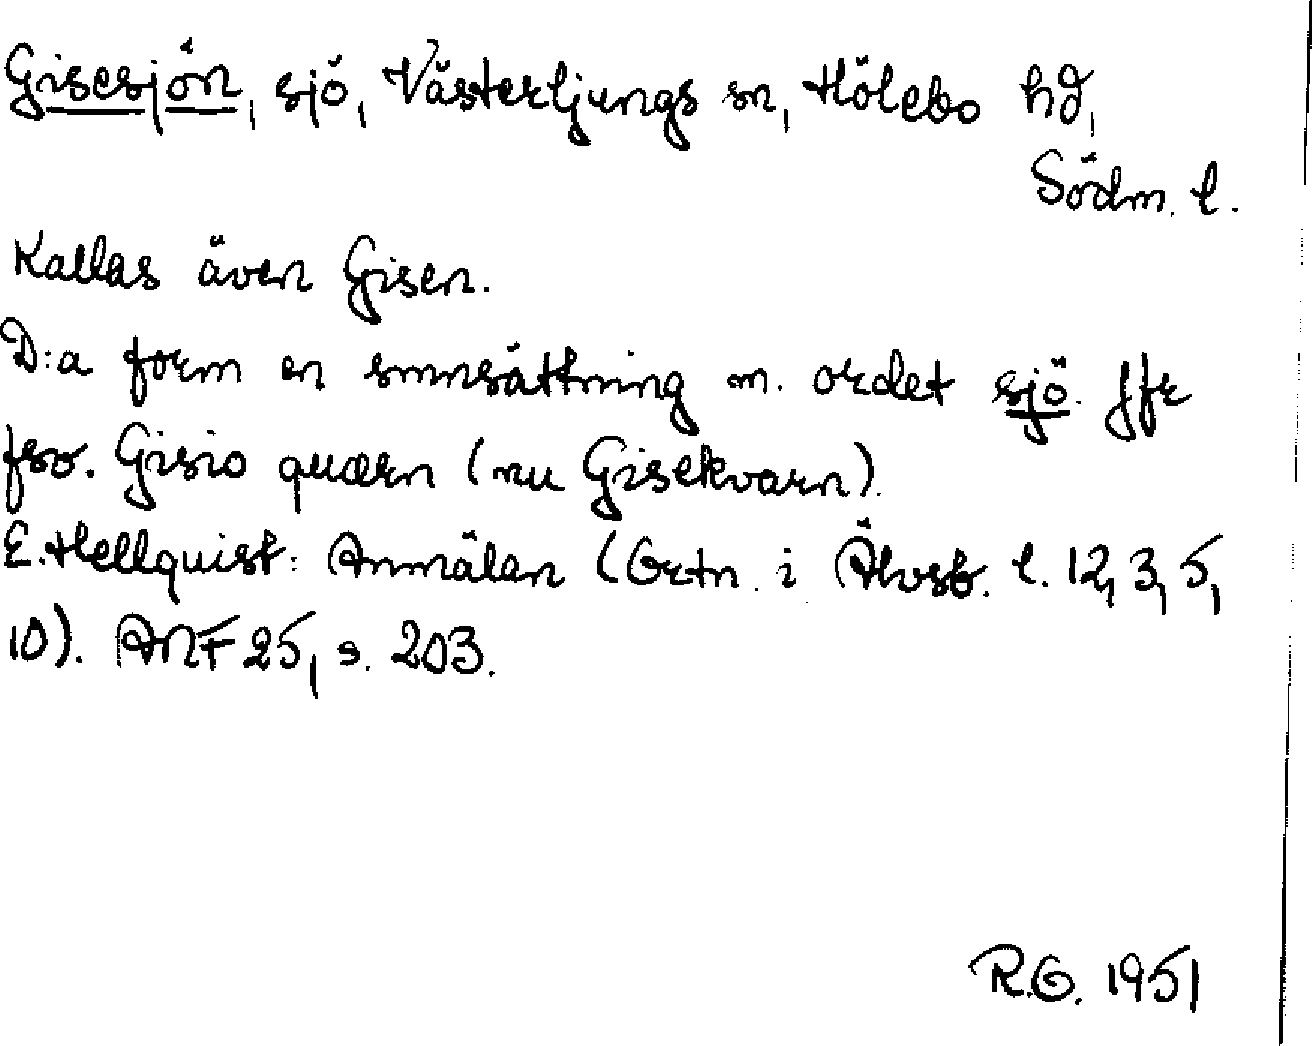 Gisesjön, sjö, Västerljungs sn, Hölebo hd,
Södm. l.
Kallas även Gisen.
D:a form en smnsättning m. ordet sjö. Jfr
fsv. Gisio quærn (nu Gisekvarn).
E. Hellquist: Anmälan (Ortn. i Älvsb. l. 12, 3, 5,
10). ANF 25, s. 203.
R.O. 1951